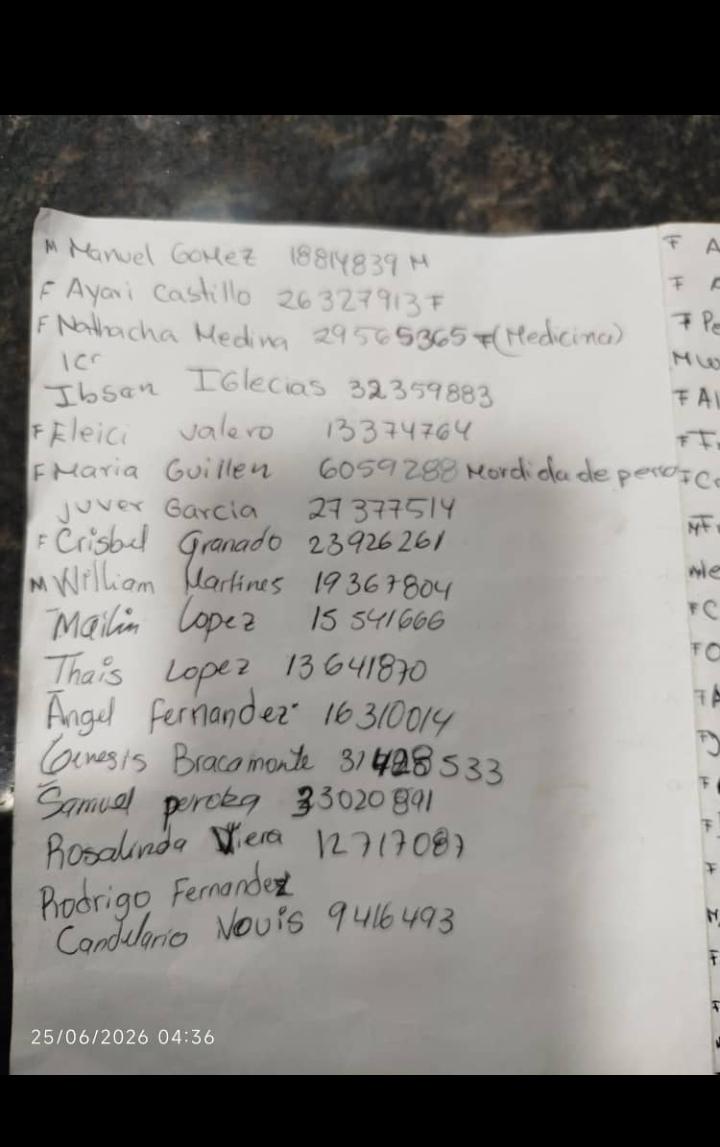 M Manuel GoMez 18814839 M
F Ayari Castillo 26327913 F
F Nathacha Medina 29565365 F (Medicina)
Icr
Ibsan IGlecias 32359883
F Eleici Valero 13374764
F Maria Guillen 6059288 Mordida de perro
Juver Garcia 27377514
F Crisbel Granado 23926261
M William Martines 19367804
Mailin Lopez 15541666
Thais Lopez 13641870
Angel Fernandez 16310014
Genesis Bracamonte 31428533
Samuel 33020891
Rosalinda Viera 12717087
Rodrigo Fernandez
Candelario Novis 9416493
F A
F
F Pe
M
F Al
F
F C
F C
F O
F A
F
F
F
F
F
25/06/2026 04:36